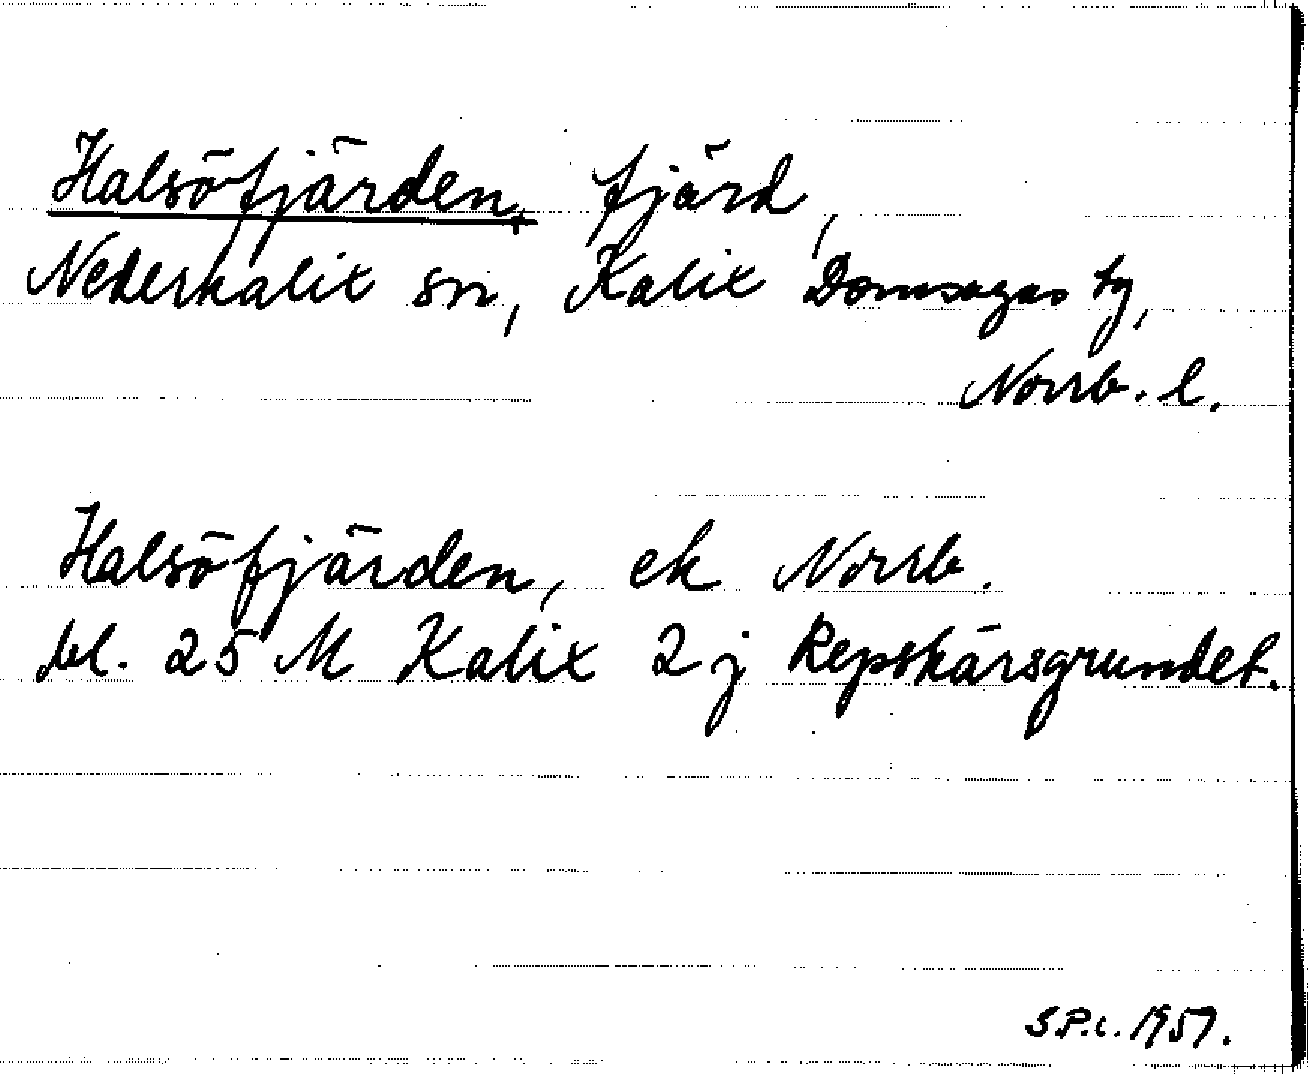 Halsöfjärden, fjärd,
Nederkalix sn, Kalix Domsagas tg,
Norrb. l.
Halsöfjärden, ek Norrb.
bl. 25 M Kalix 2 j Repskärsgrundet.
S.P.L. 1957.